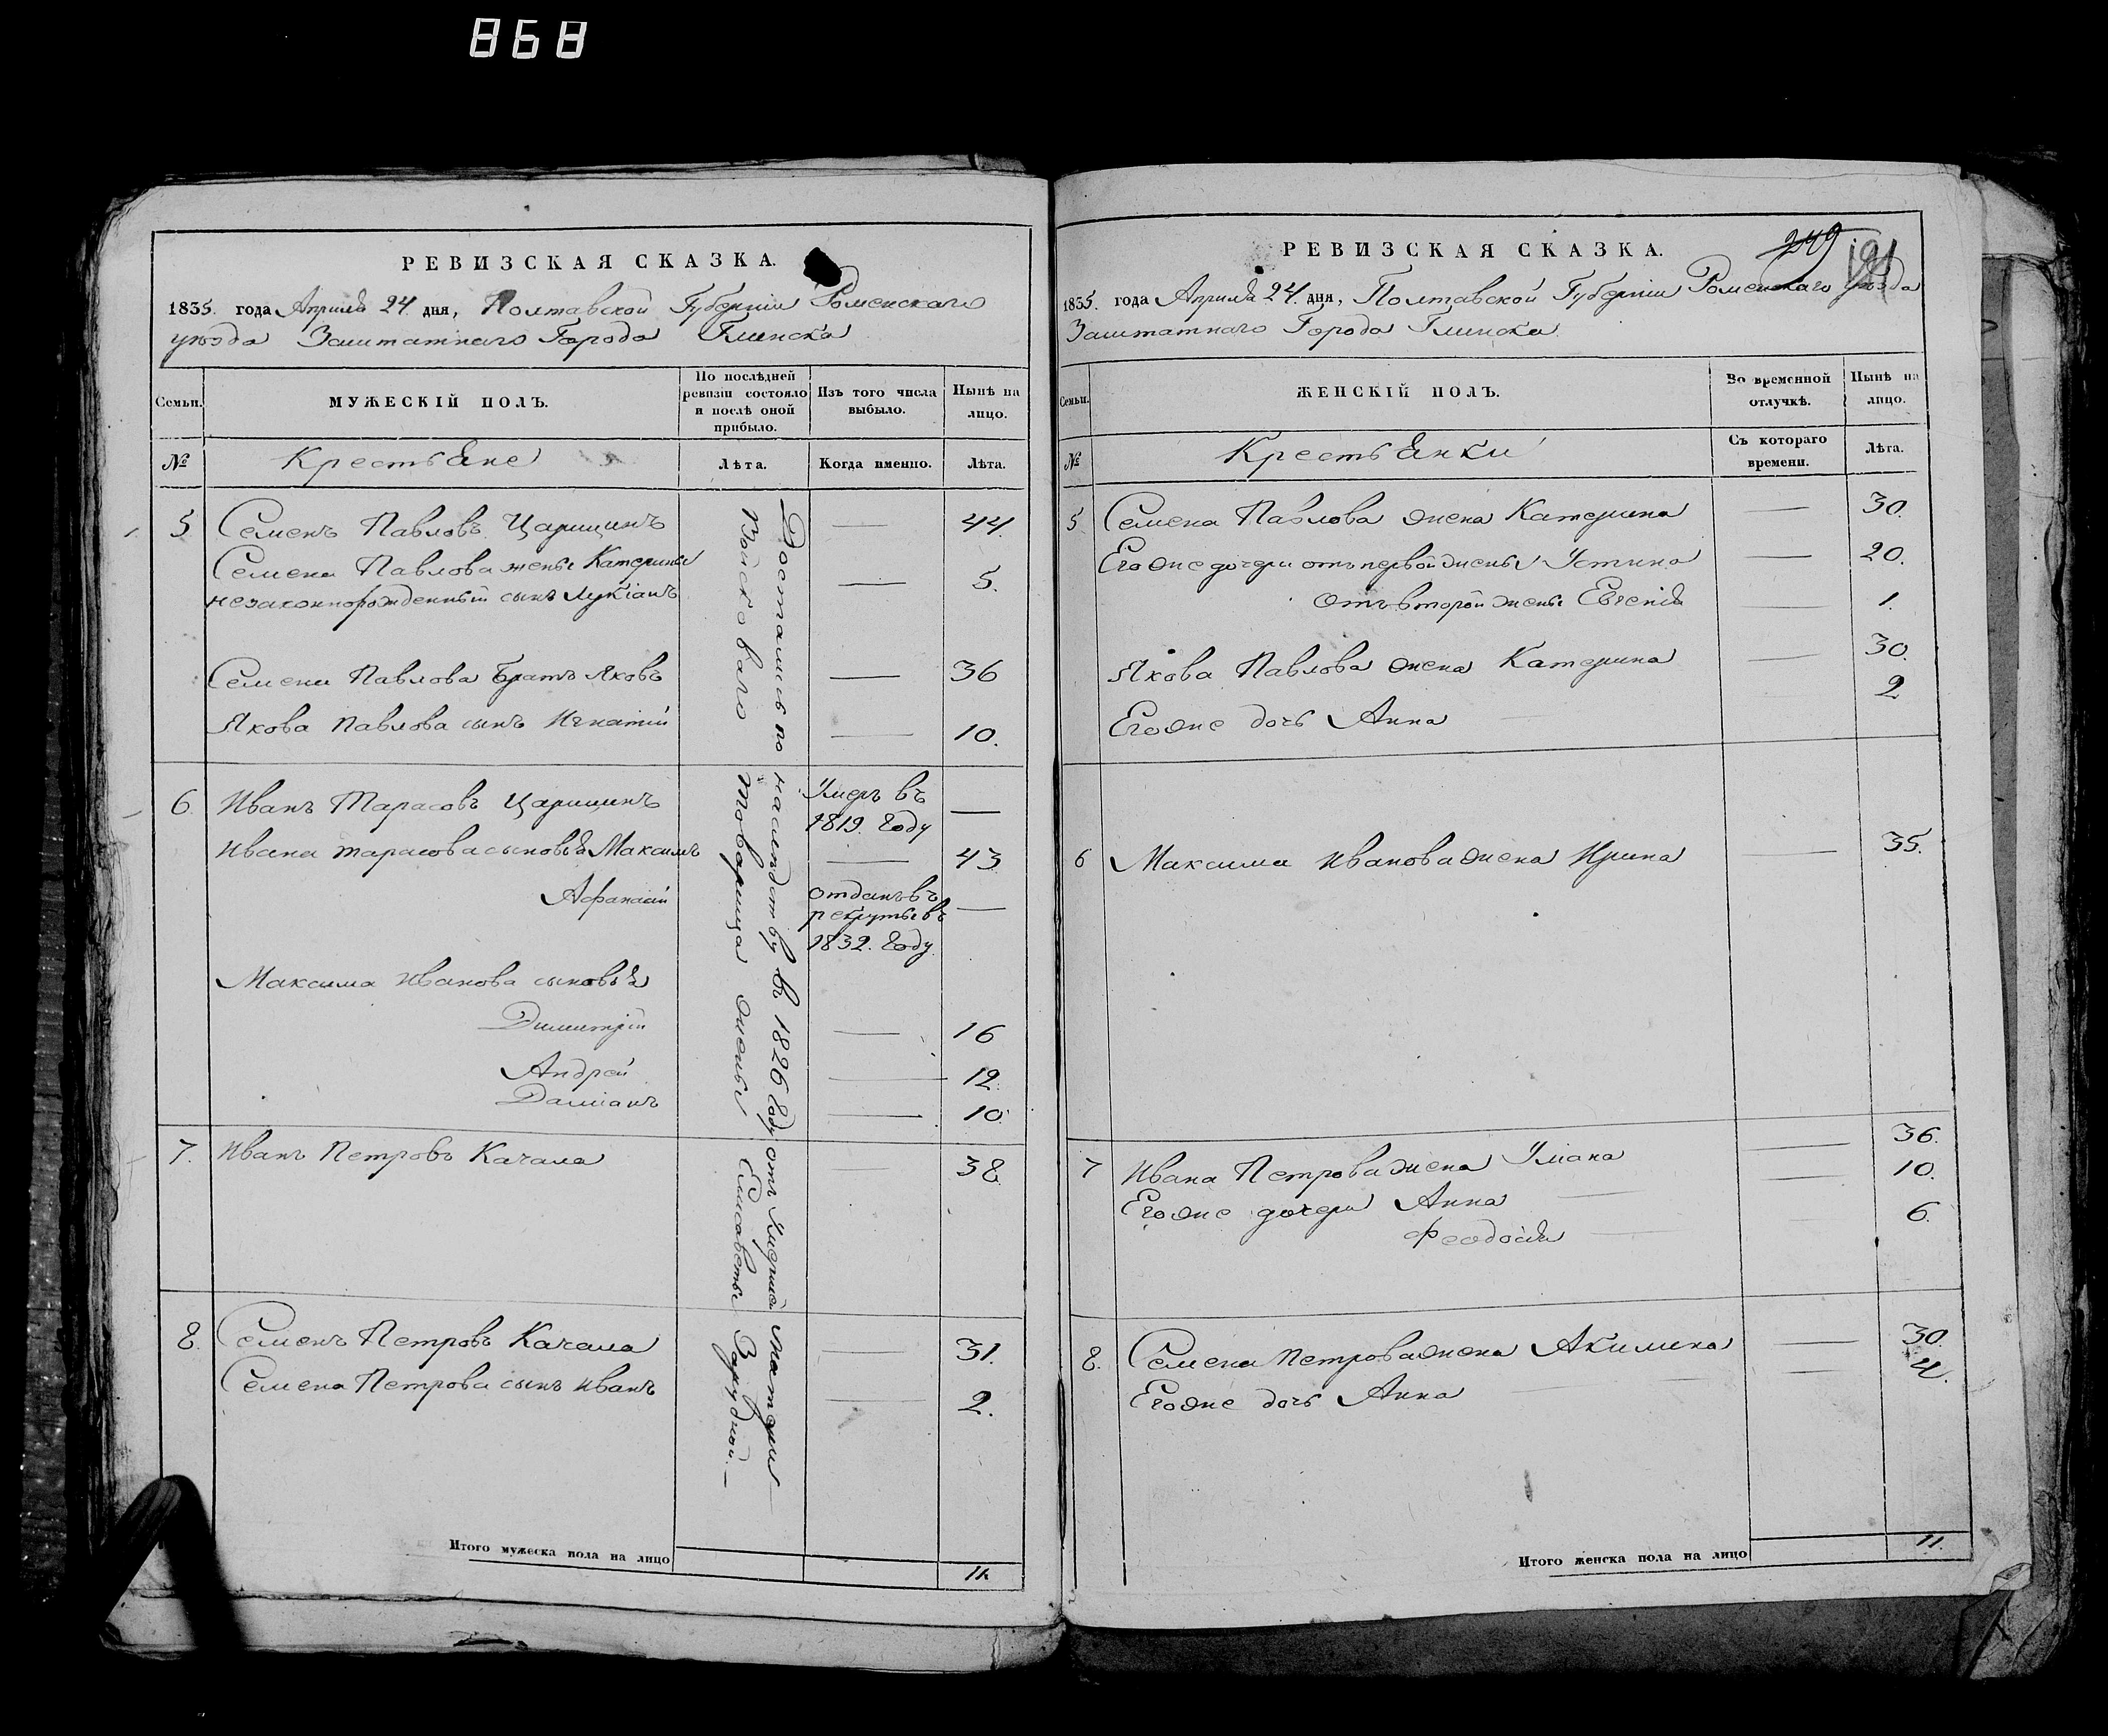 868
РЕВИЗСКАЯ СКАЗКА.
1835. года Апреля 24. дня, Полтавской Губернии Роменскаго
уезда Заштатнаго Города Глинска
Семьи.
МУЖЕСКІЙ ПОЛЪ.
По послѣдней
ревизіи состояло
и послѣ оной
прибыло.
Изъ того числа
выбыло.
Нынѣ на
лицо.
№
Крестьяне
Лѣта.
Когда именно.
Лѣта.
Достались по наследству въ 1826 году отъ умершей матери
Войсковаго товарища жены Елисаветы Зарудной.
5 Семенъ Павловъ Царицинъ — 44.
Семена Павлова жены Катерины
незаконнорожденный сынъ Лукіанъ — 5.
Семена Павлова братъ Яковъ — 36
Якова Павлова сынъ Игнатій — 10.
6 Иванъ Тарасовъ Царицинъ Умеръ въ
1819. году —
Ивана Тарасова сыновья Максимъ — 43
Афанасій отданъ въ
рекруты въ —
1832. году
Максима Иванова сыновья
Димитрій — 16
Андрей — 12.
Даміанъ — 10.
7. Иванъ Петровъ Качала — 38
8. Семенъ Петровъ Качала — 31.
Семена Петрова сынъ Иванъ — 2.
Итого мужеска пола на лицо 11.
249 191
РЕВИЗСКАЯ СКАЗКА.
1835. года Апреля 24. дня, Полтавской Губернии Роменскаго уезда
Заштатнаго Города Глинска
Семьи.
ЖЕНСКІЙ ПОЛЪ.
Во временной
отлучкѣ.
Нынѣ на
лицо.
№
Крестьянки
Съ котораго
времени.
Лѣта.
5 Семена Павлова жена Катерина — 30.
Его же дочери отъ первой жены Устина — 20.
отъ второй жены Евгенія — 1.
Якова Павлова жена Катерина — 30.
Его же дочь Анна 2
6 Максима Иванова жена Ирина — 35.
7 Ивана Петрова жена Уляна — 36.
Его же дочери Анна — 10.
Феодосия — 6.
8. Семена Петрова жена Акилина — 30.
Его же дочь Анна — 4.
Итого женска пола на лицо 11.